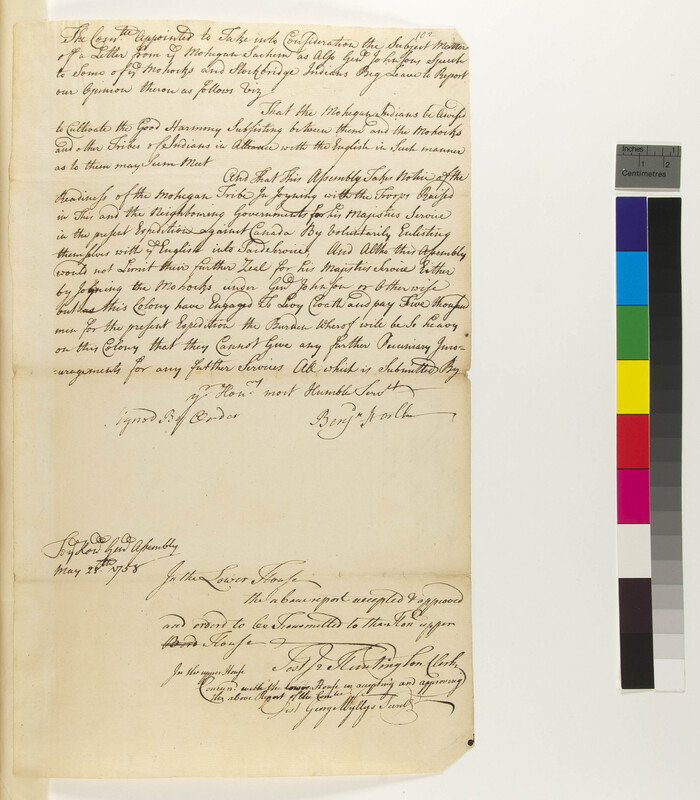 102
The Comtte Appointed to Take into Consideration the Subject Matter
of a Letter from ye Mohegan Sachem as Also Genll Johnsons Speech
to Some of ye Mohocks and Stockbridge Indians Beg Leave to Report
our Opinion theron as follows Viz
That the Mohegan Indians be Advised
to Cultivate the Good Harmony Subsisting between them and the Mohocks
and other Tribes of Indians in Alliance with the English in Such manner
as to them may Seem Meet
And That this Assembly Takes Notice of the
Readiness of the Mohegan Tribe In Joyning with the Troops Raised
in This and the Neighbouring Governments for his Majesties Service
in the present Expedition against Canada By Voluntarily Enlisting
themselves with ye English into Said Service, And Altho this Assembly
would not Limit their further Zeal for his Majesties Service Either
by Joyning the Mohocks under Genll Johnson or Otherwise
but as this Colony have Engaged To Levy Cloath and pay Five thousand
men for the present Expedition the Burden wherof will be So heavy
on this Colony that they Cannot Give any further Pecuniary Incou-
-uragements for any further Services All which is Submitted By
yr Honrs most Humble Servt
Signed Pr Order Benjn
To ye Honl Genll Assembly
May 28th 1758
In the Lower House
the above report accepted & approved
and orderd to be Transmitted to the Hon upper
House
Test Huntington Clerk
In the upper House
Concurd with the lower House in accepting and approving
the above Report of the Comtee
Test George Wyllys Secret
Inches 1
1 2
Centimetres